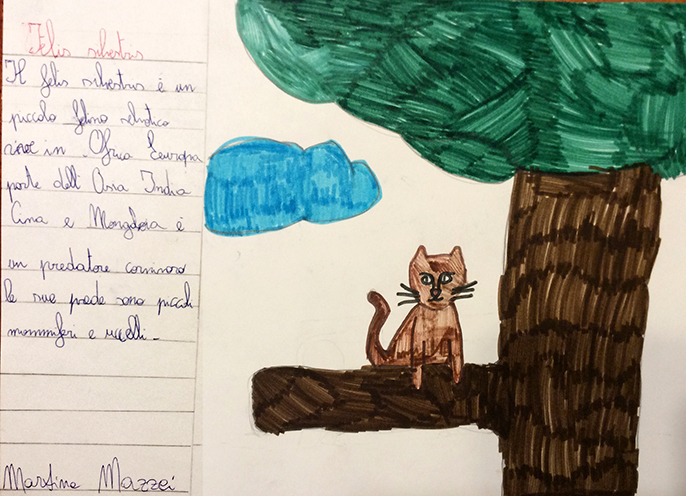 Felis silvestris
Il felis silvestris è un
piccolo felino selvatico
vive in Africa Europa
parte dell Asia India
Cina e Mongolia è
un predatore carnivoro
le sue prede sono piccoli
mammiferi e uccelli.
Martina Mazzei